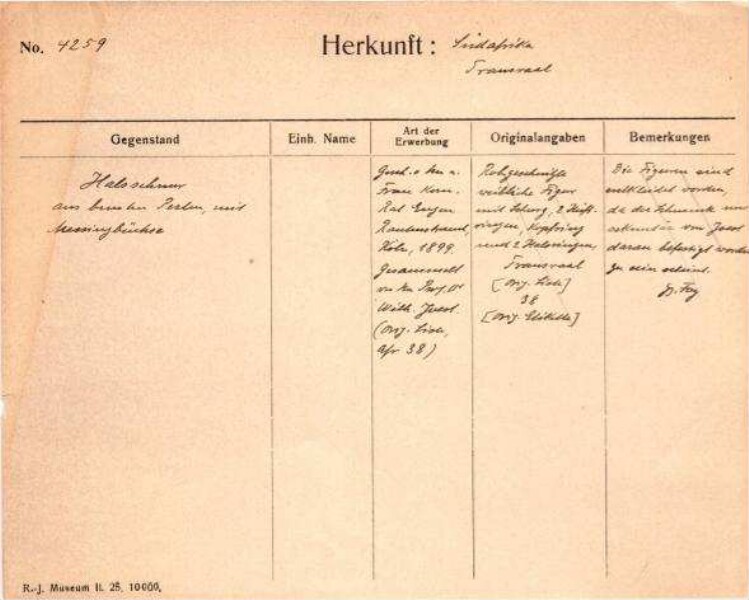 No. 4259
Herkunft: Südafrika
Transvaal
Gegenstand
Einh. Name
Art der Erwerbung
Originalangaben
Bemerkungen
Halsschnur
aus bunten Perlen, mit
Messingbüchse
Gesch. v. Hn u.
Frau Kom.
Rat Eugen
Rautenstrauch,
Köln, 1899.
Gesammelt
von Hn Prof. Dr
Wilh. Joest.
(Orig. Liste,
Afr 38)
Rohgeschnitzte
weibliche Figur
mit Schurz, 2 Hüft-
ringen, Kopfring
und 2 Halsringen,
Transvaal
[Orig. Liste]
38
[Orig. Etikette]
Die Figuren sind
entkleidet worden,
da der Schmuck nur
sekundär von Joest
daran befestigt worden
zu sein scheint.
Foy
R.-J. Museum II. 25. 10000.